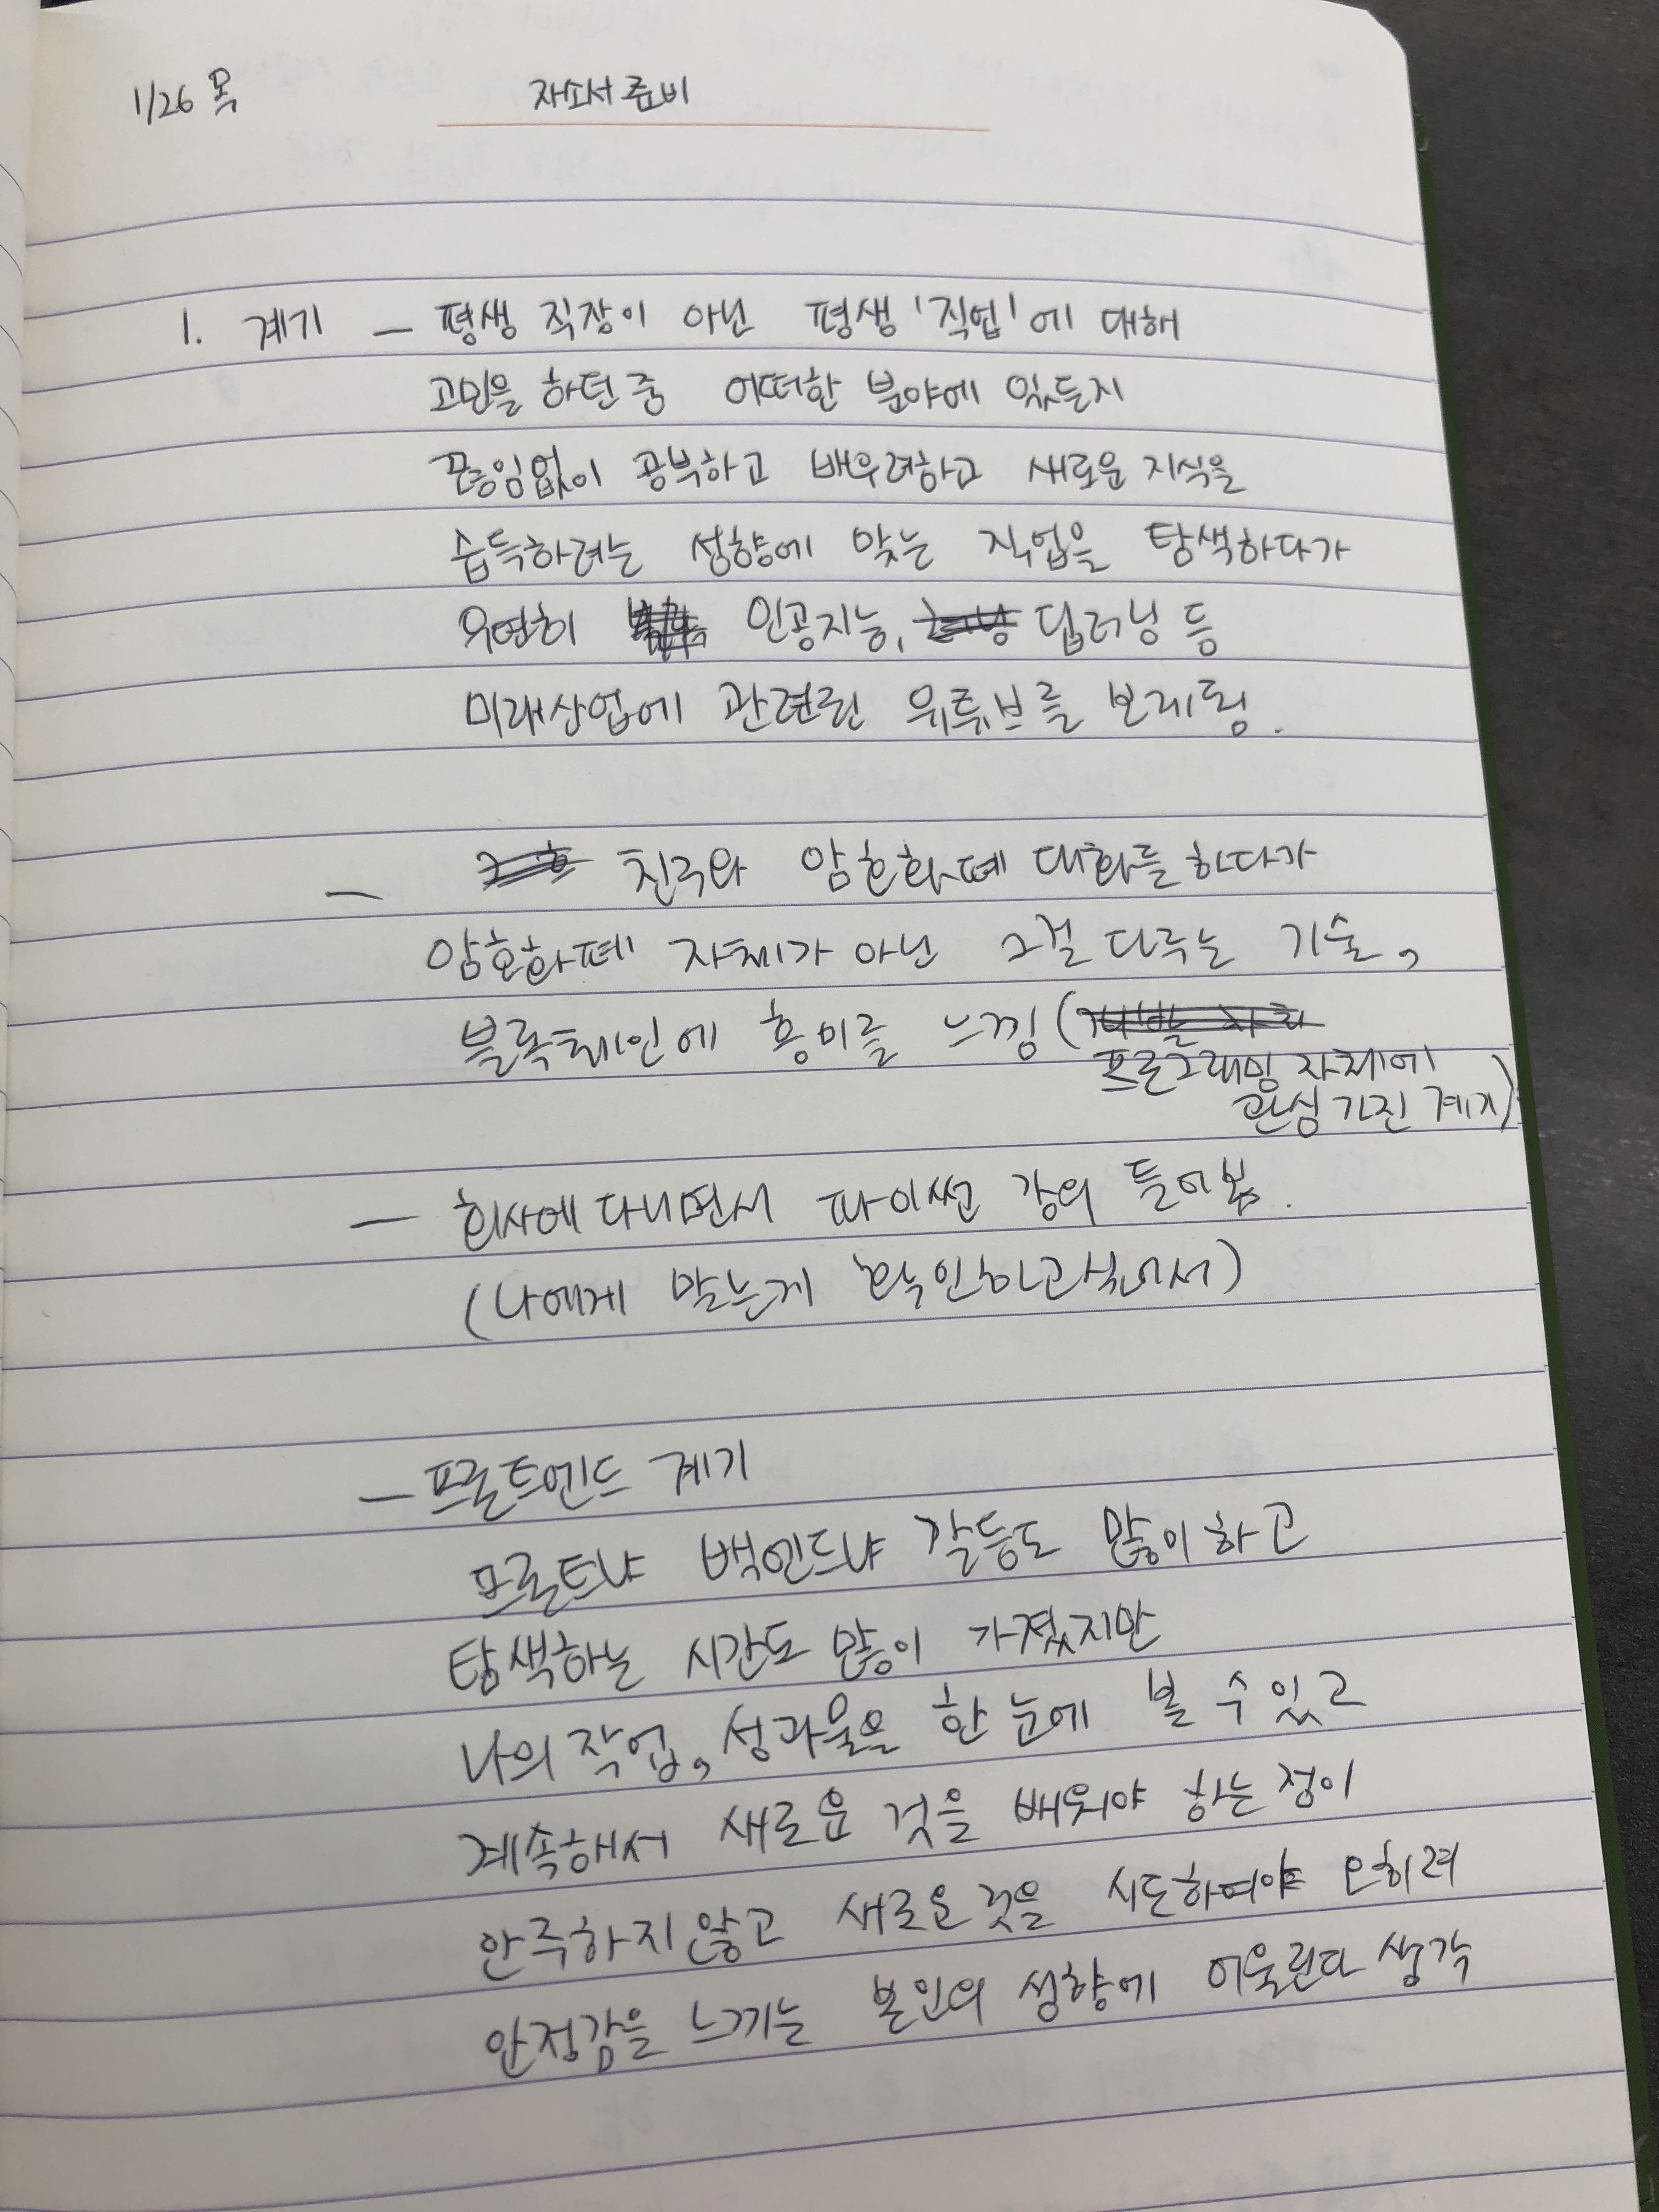 1/26 목
자소서 준비
1. 계기 - 평생 직장이 아닌 평생 '직업'에 대해
고민을 하던 중 어떠한 분야에 있든지
끊임없이 공부하고 배우려하고 새로운 지식을
습득하려는 성향에 맞는 직업을 탐색하다가
우연히 인공지능, 딥러닝 등
미래산업에 관련된 유튜브를 보게됨.
- 친구와 암호화폐 대화를 하다가
암호화폐 자체가 아닌 그걸 다루는 기술,
블록체인에 흥미를 느낌 (
프로그래밍 자체에
관심 가진 계기)
- 회사에 다니면서 파이썬 강의 들어봄.
(나에게 맞는게 확인하고싶어서)
- 프론트엔드 계기
프론트냐 백엔드냐 갈등도 많이 하고
탐색하는 시간도 많이 가졌지만
나의 작업, 성과물을 한 눈에 볼 수 있고
계속해서 새로운 것을 배워야 하는 점이
안주하지 않고 새로운 것을 시도하여야 오히려
안정감을 느끼는 본인의 성향에 어울린다 생각